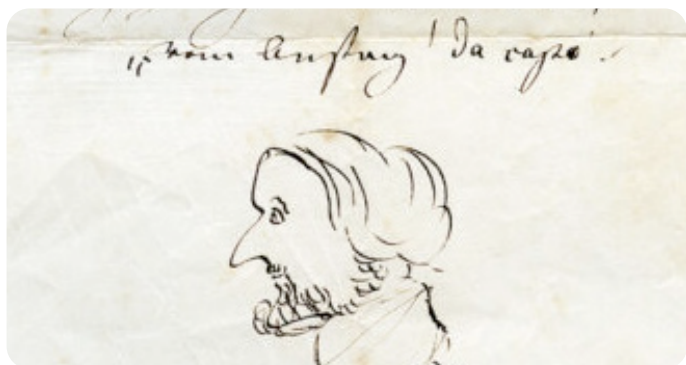 „vom Anfang! da capo!